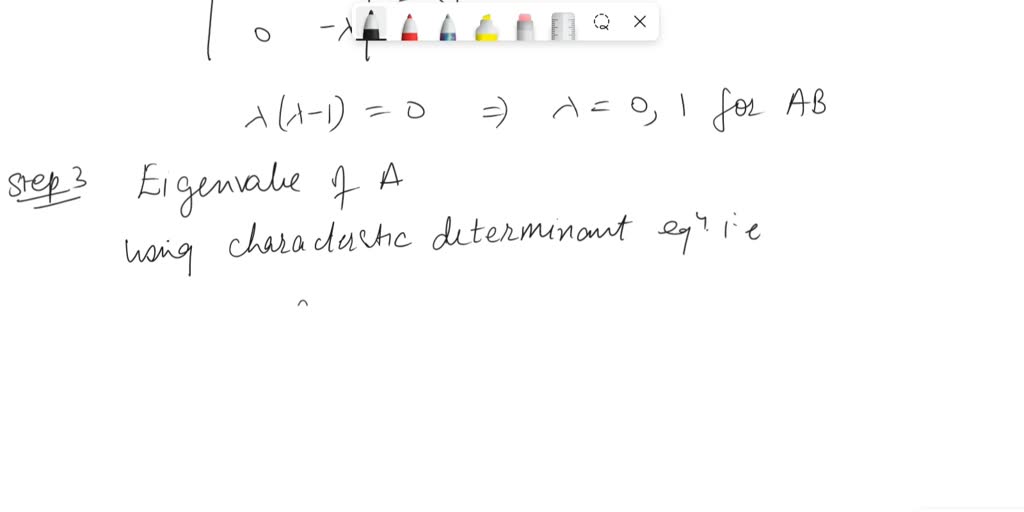 0 -λ
λ(λ-1) = 0 ⇒ λ = 0, 1 for AB
Step 3 Eigenvalue of A
using characterstic determinant eqⁿ i.e